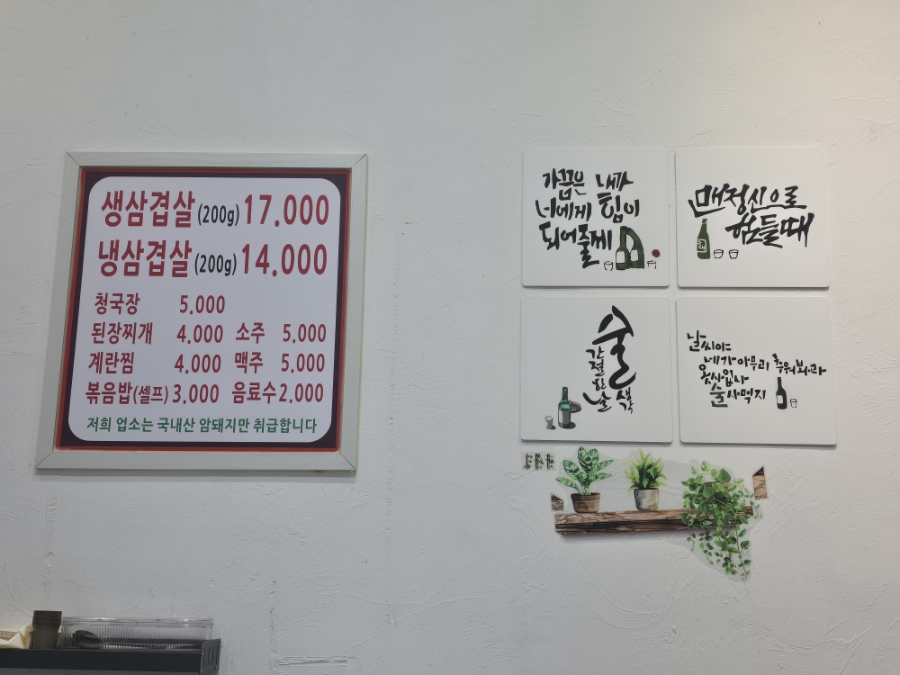 생삼겹살 (200g) 17.000
냉삼겹살 (200g) 14.000
청국장 5.000
된장찌개 4.000 소주 5.000
계란찜 4.000 맥주 5.000
볶음밥(셀프) 3.000 음료수 2.000
저희 업소는 국내산 암돼지만 취급합니다
가끔은 내가
너에게 힘이
되어줄께
맨정신으로
힘들때
술
간절한 날
색
날씨야
네가 아무리 추워봐라
옷사입나
술사먹지